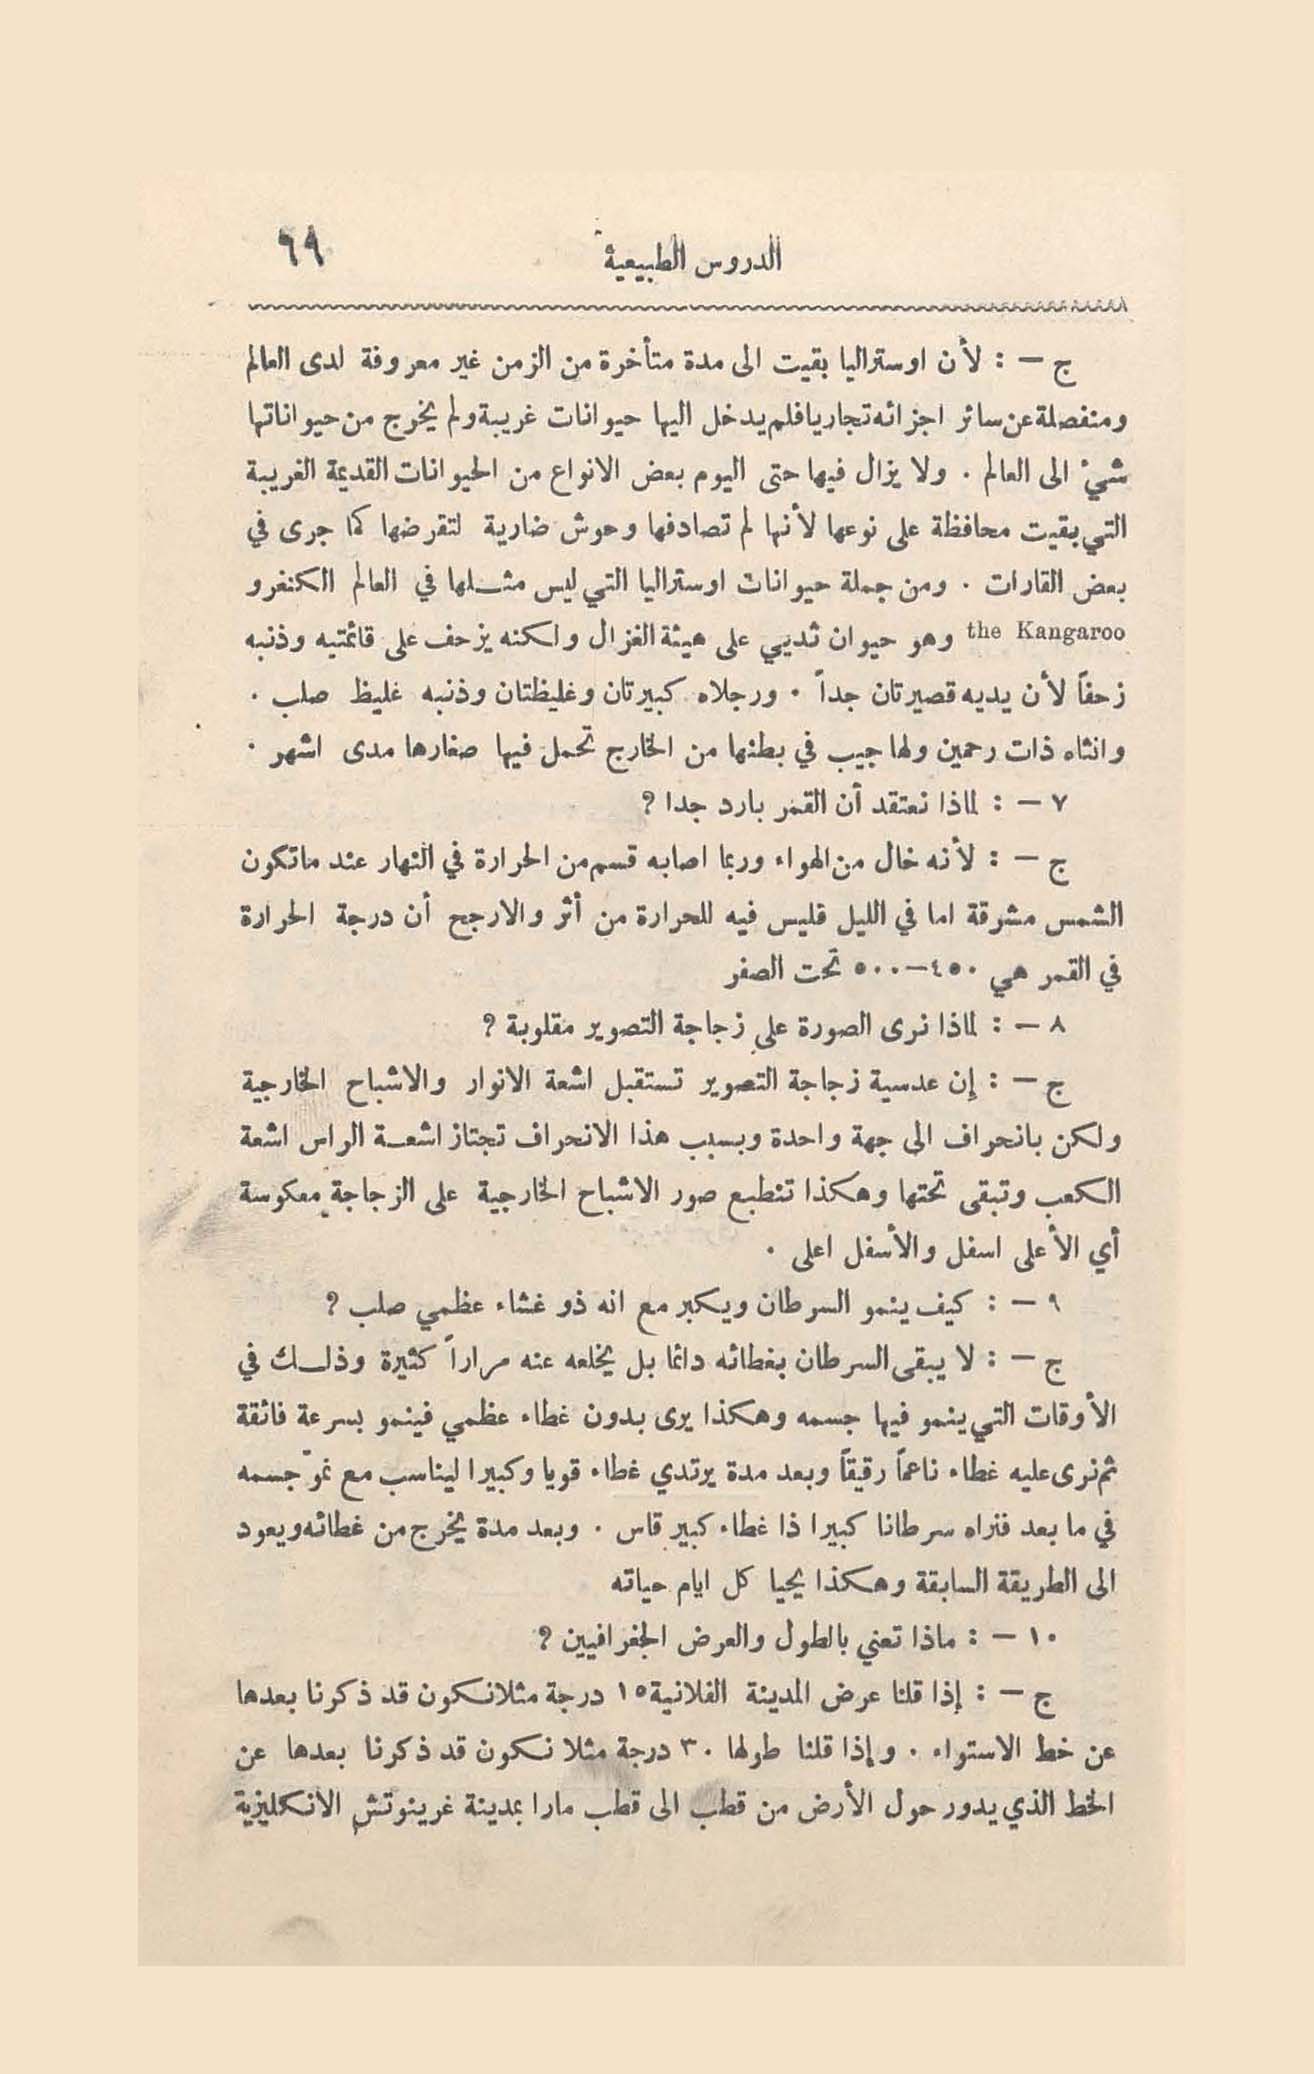 الدروس الطبيعية ٦٩
ج — : لأن اوستراليا بقيت الى مدة متأخرة من الزمن غير معروفة لدى العالم
ومنفصلة عن سائر اجزائه تجاريا فلم يدخل اليها حيوانات غريبة ولم يخرج من حيواناتها
شيءٌ الى العالم . ولا يزال فيها حتى اليوم بعض الانواع من الحيوانات القديمة الغريبة
التي بقيت محافظة على نوعها لأنها لم تصادفها وحوش ضارية لتقرضها كما جرى في
بعض القارات . ومن جملة حيوانات اوستراليا التي ليس مثلها في العالم الكنغرو
the Kangaroo وهو حيوان ثديي على هيئة الغزال ولكنه يزحف على قائمتيه وذنبه
زحفاً لأن يديه قصيرتان جداً . ورجلاه كبيرتان وغليظتان وذنبه غليظ صلب .
وانثاه ذات رحمين ولها جيب في بطنها من الخارج تحمل فيها صغارها مدى اشهر .
٧ — : لماذا نعتقد أن القمر بارد جدا ؟
ج — : لأنه خال من الهواء وربما اصابه قسم من الحرارة في النهار عند ماتكون
الشمس مشرقة اما في الليل فليس فيه للحرارة من أثر والارجح أن درجة الحرارة
في القمر هي ٤٥٠—٥٠٠ تحت الصفر
٨ — : لماذا نرى الصورة على زجاجة التصوير مقلوبة ؟
ج — : إن عدسية زجاجة التصوير تستقبل اشعة الانوار والاشباح الخارجية
ولكن بانحراف الى جهة واحدة وبسبب هذا الانحراف تجتاز اشعة الراس اشعة
الكعب وتبقى تحتها وهكذا تنطبع صور الاشباح الخارجية على الزجاجة معكوسة
أي الأعلى اسفل والأسفل اعلى .
٩ — : كيف ينمو السرطان ويكبر مع انه ذو غشاء عظمي صلب ؟
ج — : لا يبقى السرطان بغطائه دائما بل يخلعه عنه مراراً كثيرة وذلك في
الأوقات التي ينمو فيها جسمه وهكذا يرى بدون غطاء عظمي فينمو بسرعة فائقة
ثم نرى عليه غطاء ناعماً رقيقاً وبعد مدة يرتدي غطاء قويا وكبيرا ليناسب مع نموّ جسمه
في ما بعد فنراه سرطانا كبيرا ذا غطاء كبير قاس . وبعد مدة يخرج من غطائه ويعود
الى الطريقة السابقة وهكذا يحيا كل ايام حياته
١٠ — : ماذا تعني بالطول والعرض الجغرافيين ؟
ج — : إذا قلنا عرض المدينة الفلانية ١٥ درجة مثلا نكون قد ذكرنا بعدها
عن خط الاستواء . وإذا قلنا طولها ٣٠ درجة مثلا نكون قد ذكرنا بعدها عن
الخط الذي يدور حول الأرض من قطب الى قطب مارا بمدينة غرينوتش الانكليزية